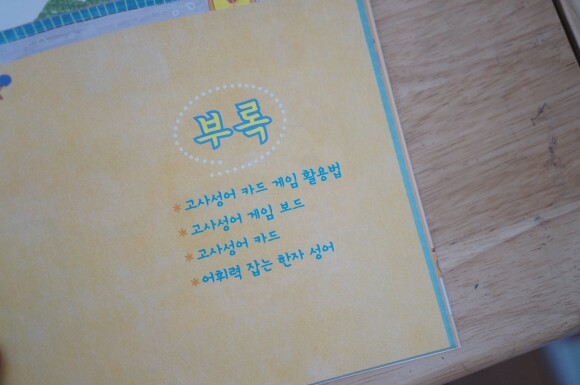 부록
* 고사성어 카드 게임 활용법
* 고사성어 게임 보드
* 고사성어 카드
* 어휘력 잡는 한자 성어